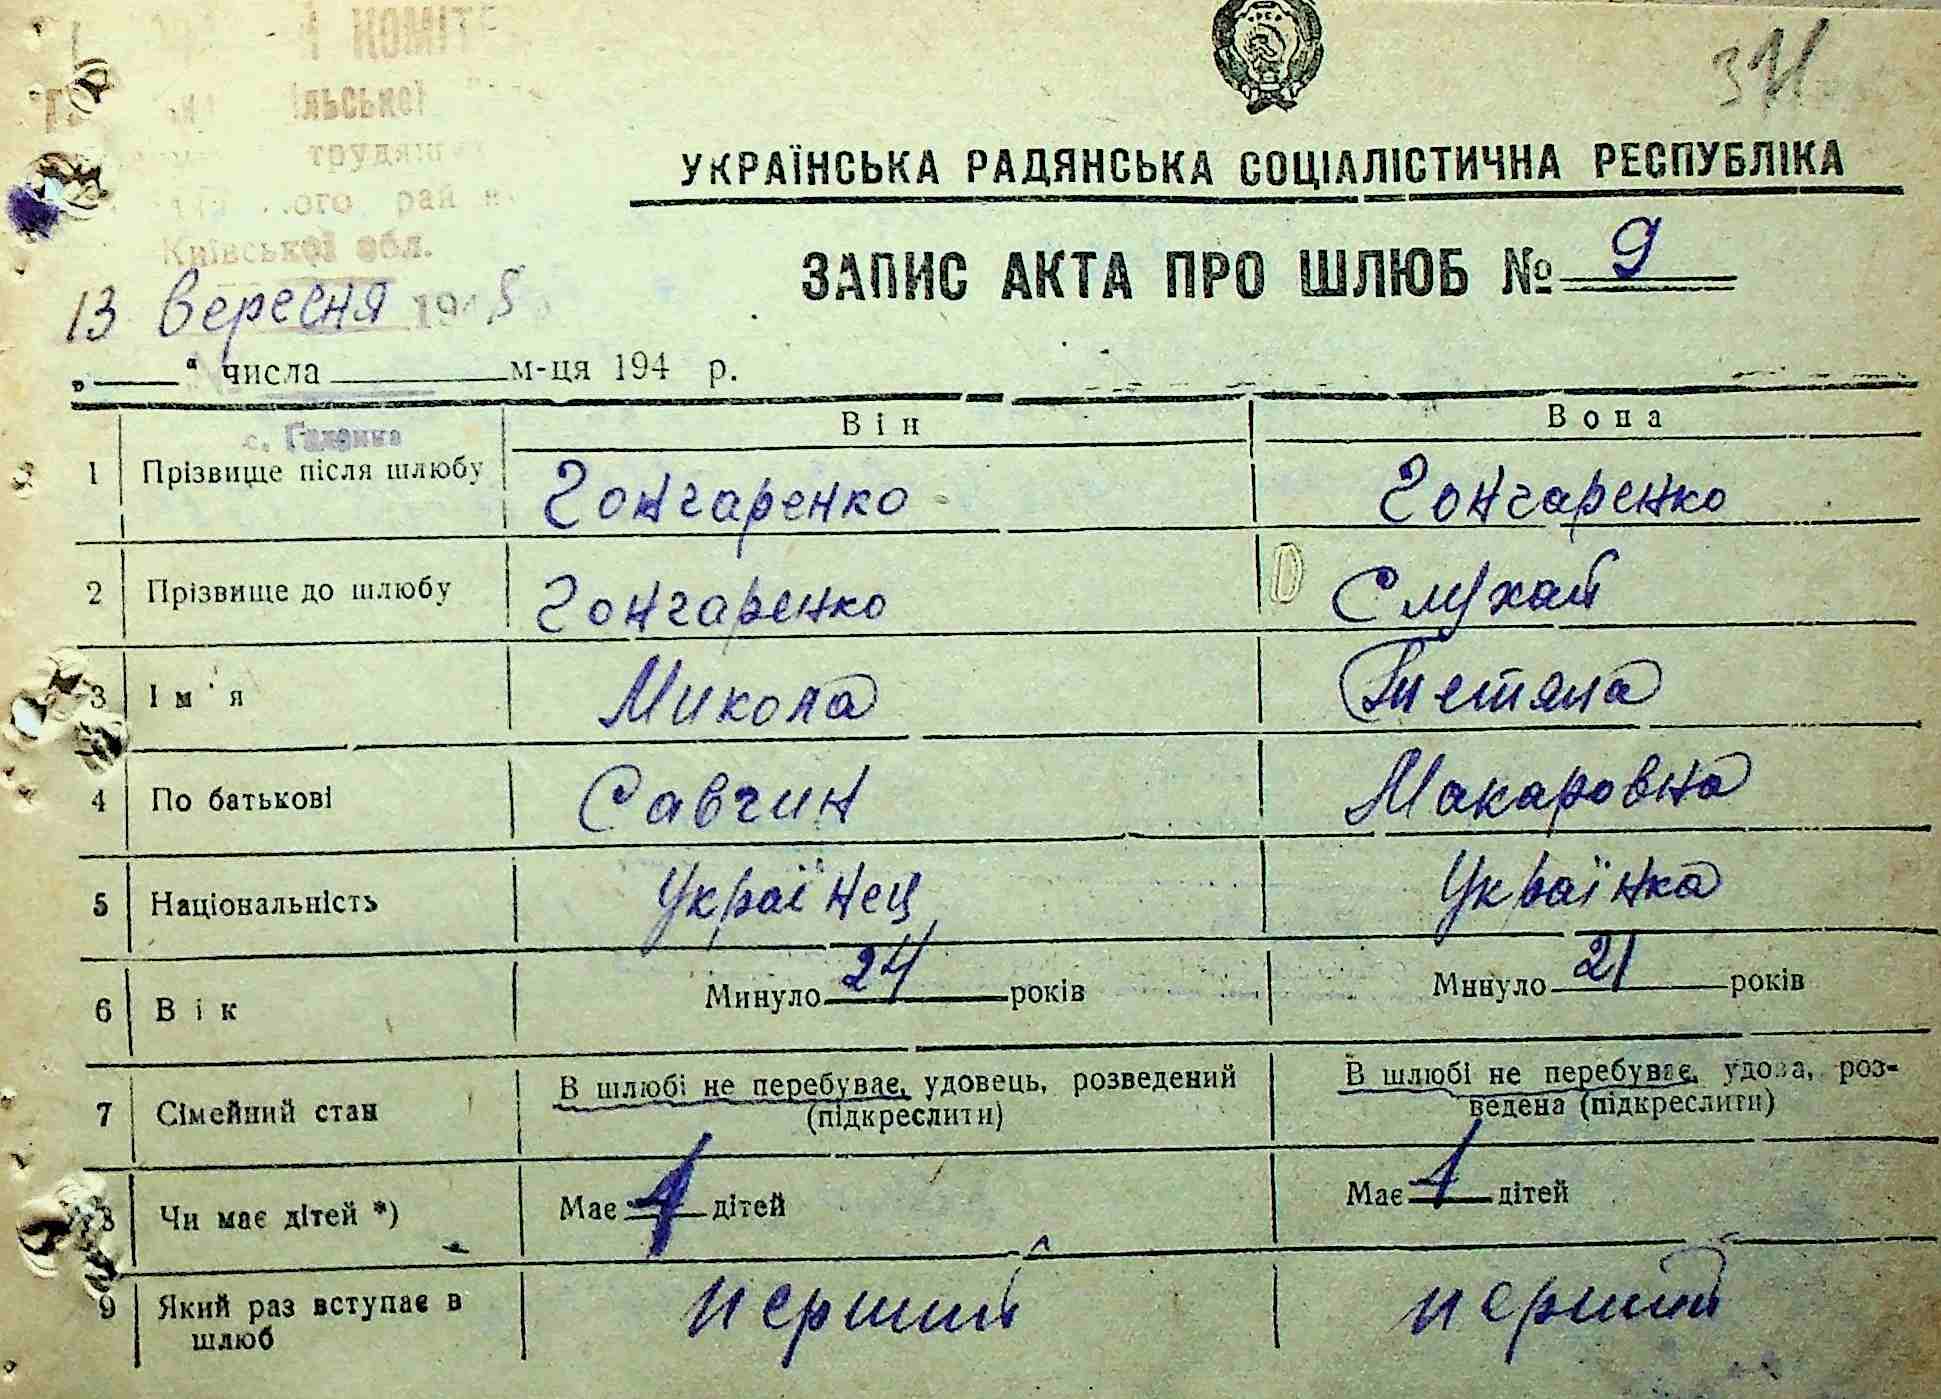 КОМІТЕ
ільської
трудящ
ого рай
Київської обл.
371
УКРАЇНСЬКА РАДЯНСЬКА СОЦІАЛІСТИЧНА РЕСПУБЛІКА
ЗАПИС АКТА ПРО ШЛЮБ № 9
13 вересня 194
„ “ числа м-ця 194 р.
Він Вона
с. Галонка
1 Прізвище після шлюбу Гончаренко Гончаренко
2 Прізвище до шлюбу Гончаренко Слухай
3 Ім'я Микола Тетяна
4 По батькові Савчин Макаровна
5 Національність Українец Українка
6 Вік Минуло 24 років Минуло 21 років
7 Сімейний стан В шлюбі не перебуває, удовець, розведений (підкреслити) В шлюбі не перебуває, удова, роз-
ведена (підкреслити)
8 Чи має дітей *) Має 1 дітей Має 1 дітей
9 Який раз вступає в шлюб перший перший